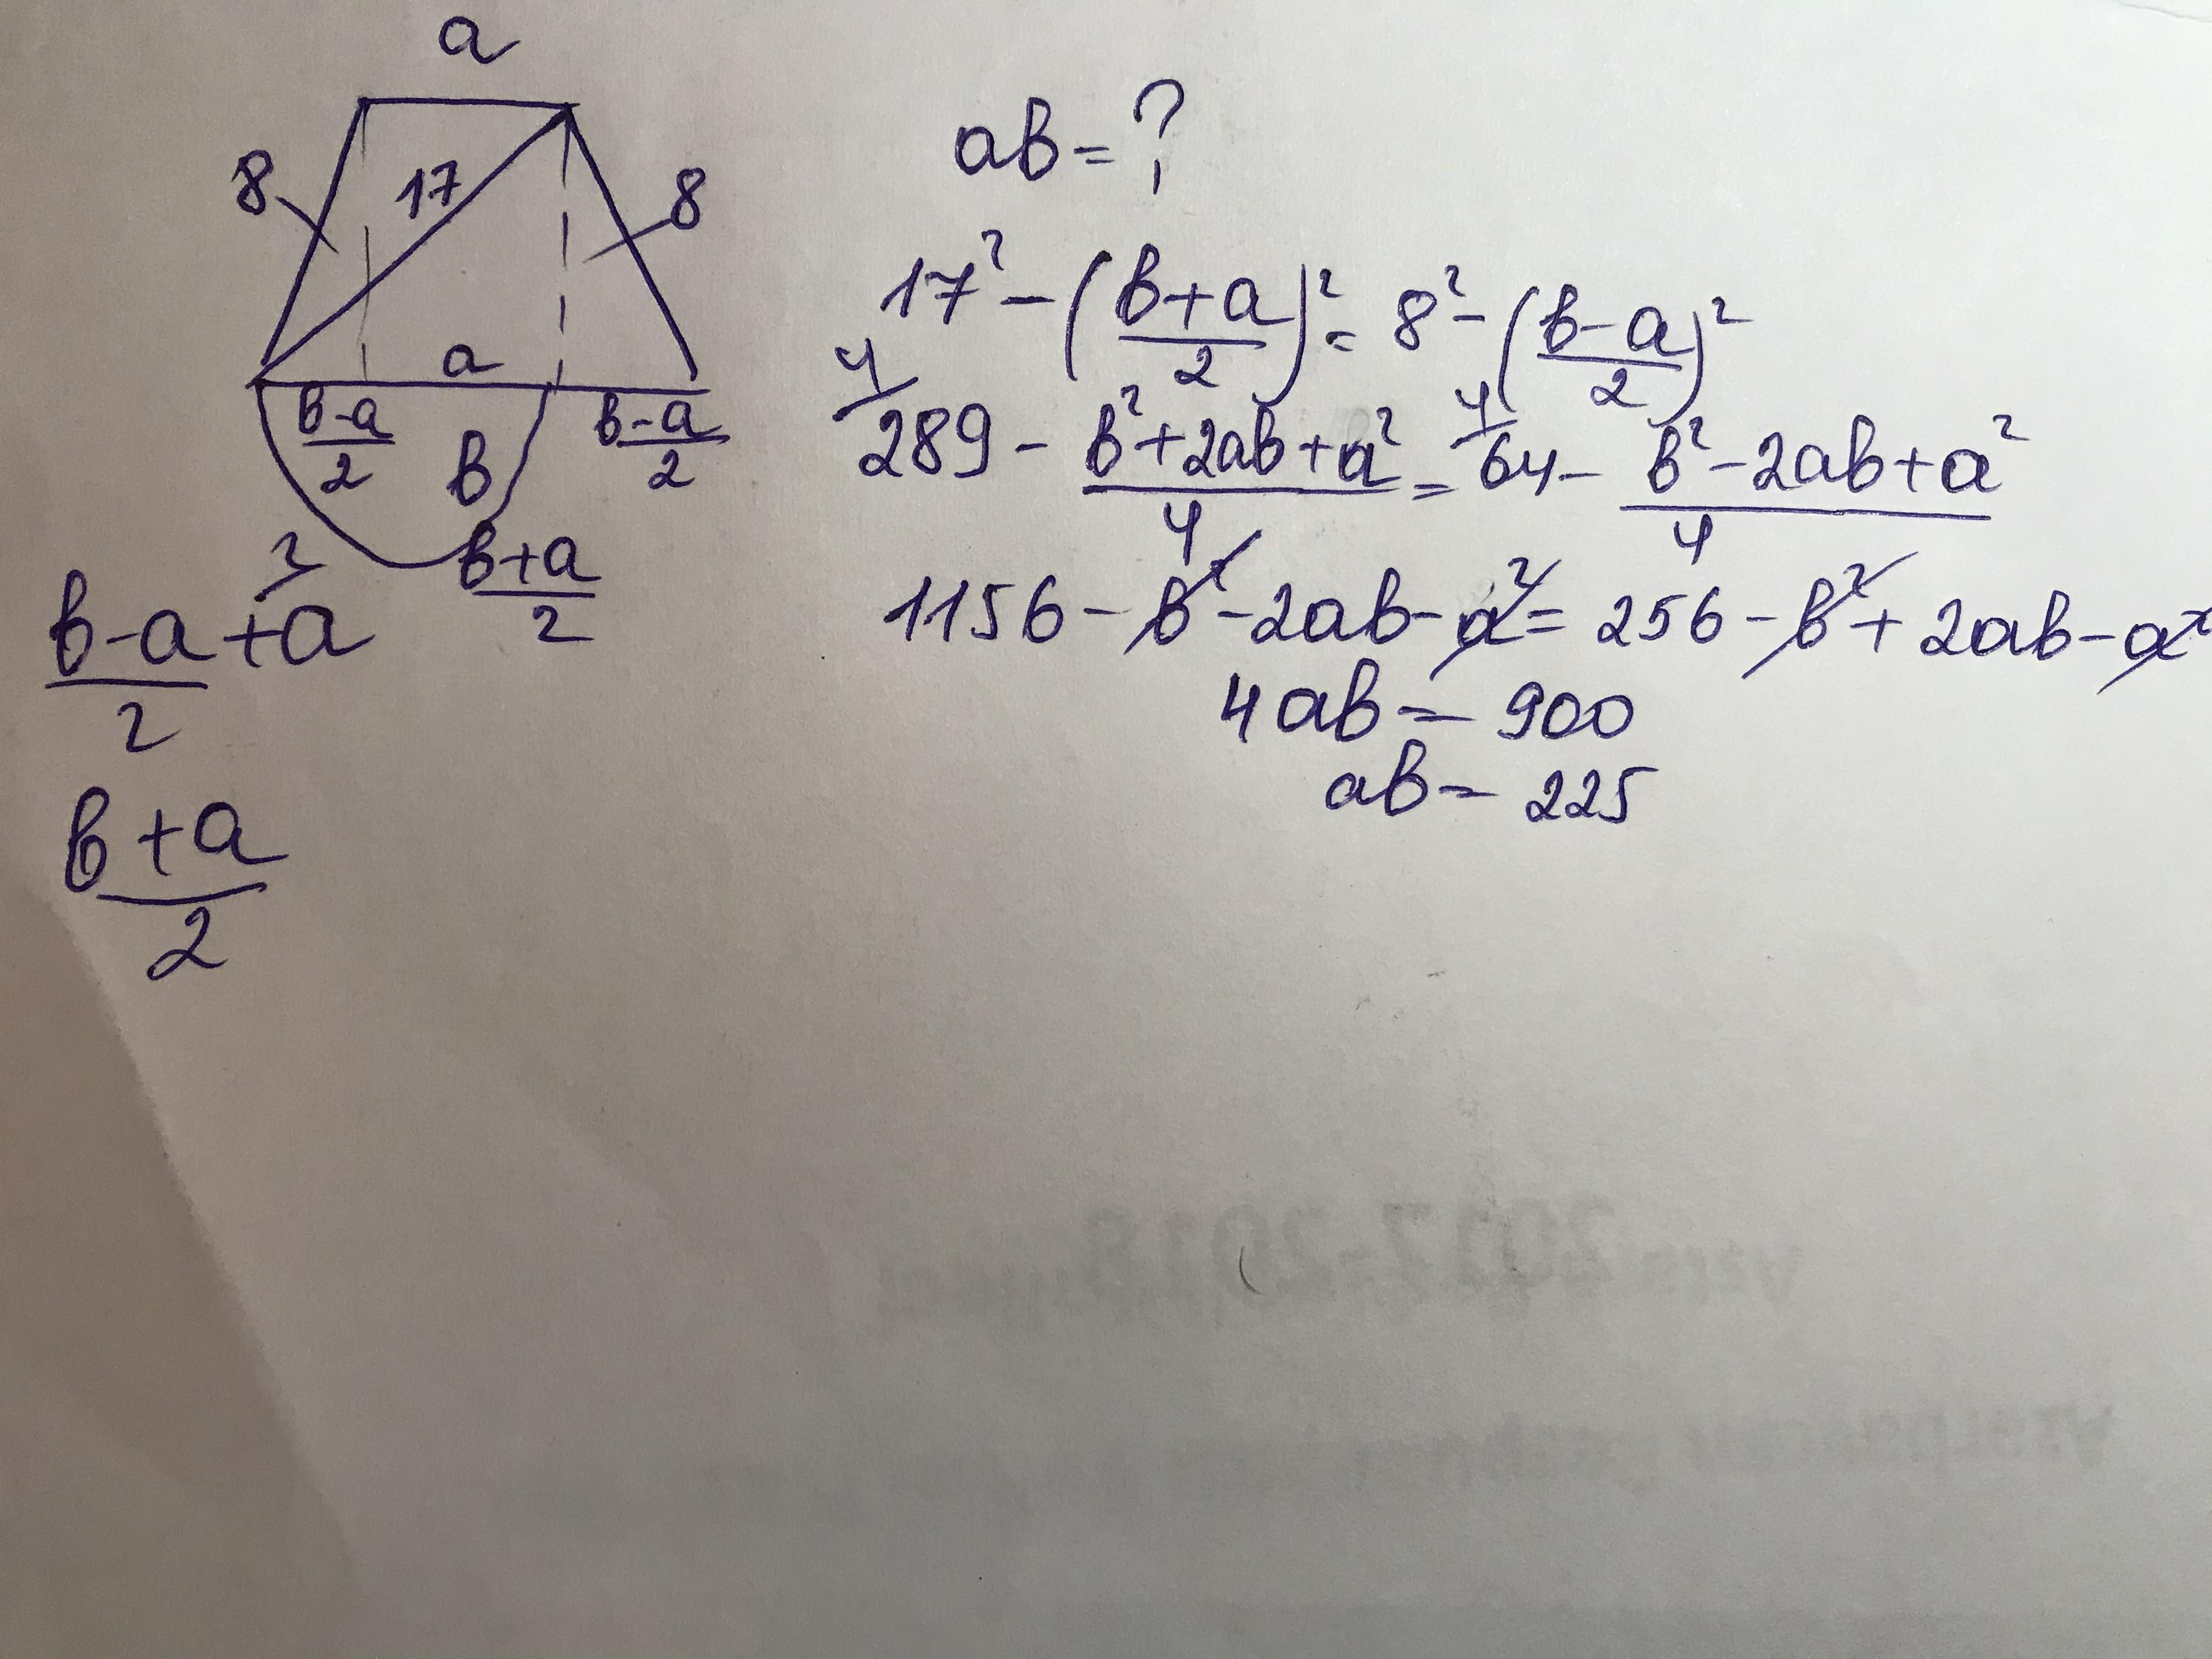 a
8
17
8
a
b-a/2
b
b-a/2
b+a/2
b-a/2 +a
2
b+a/2
ab=?
17²-(b+a/2)²=8²-(b-a/2)²
4/289 - b²+2ab+a²/4 = 4/64 - b²-2ab+a²/4
1156-b²-2ab-a²=256-b²+2ab-a²
4ab=900
ab=225
2017-2018